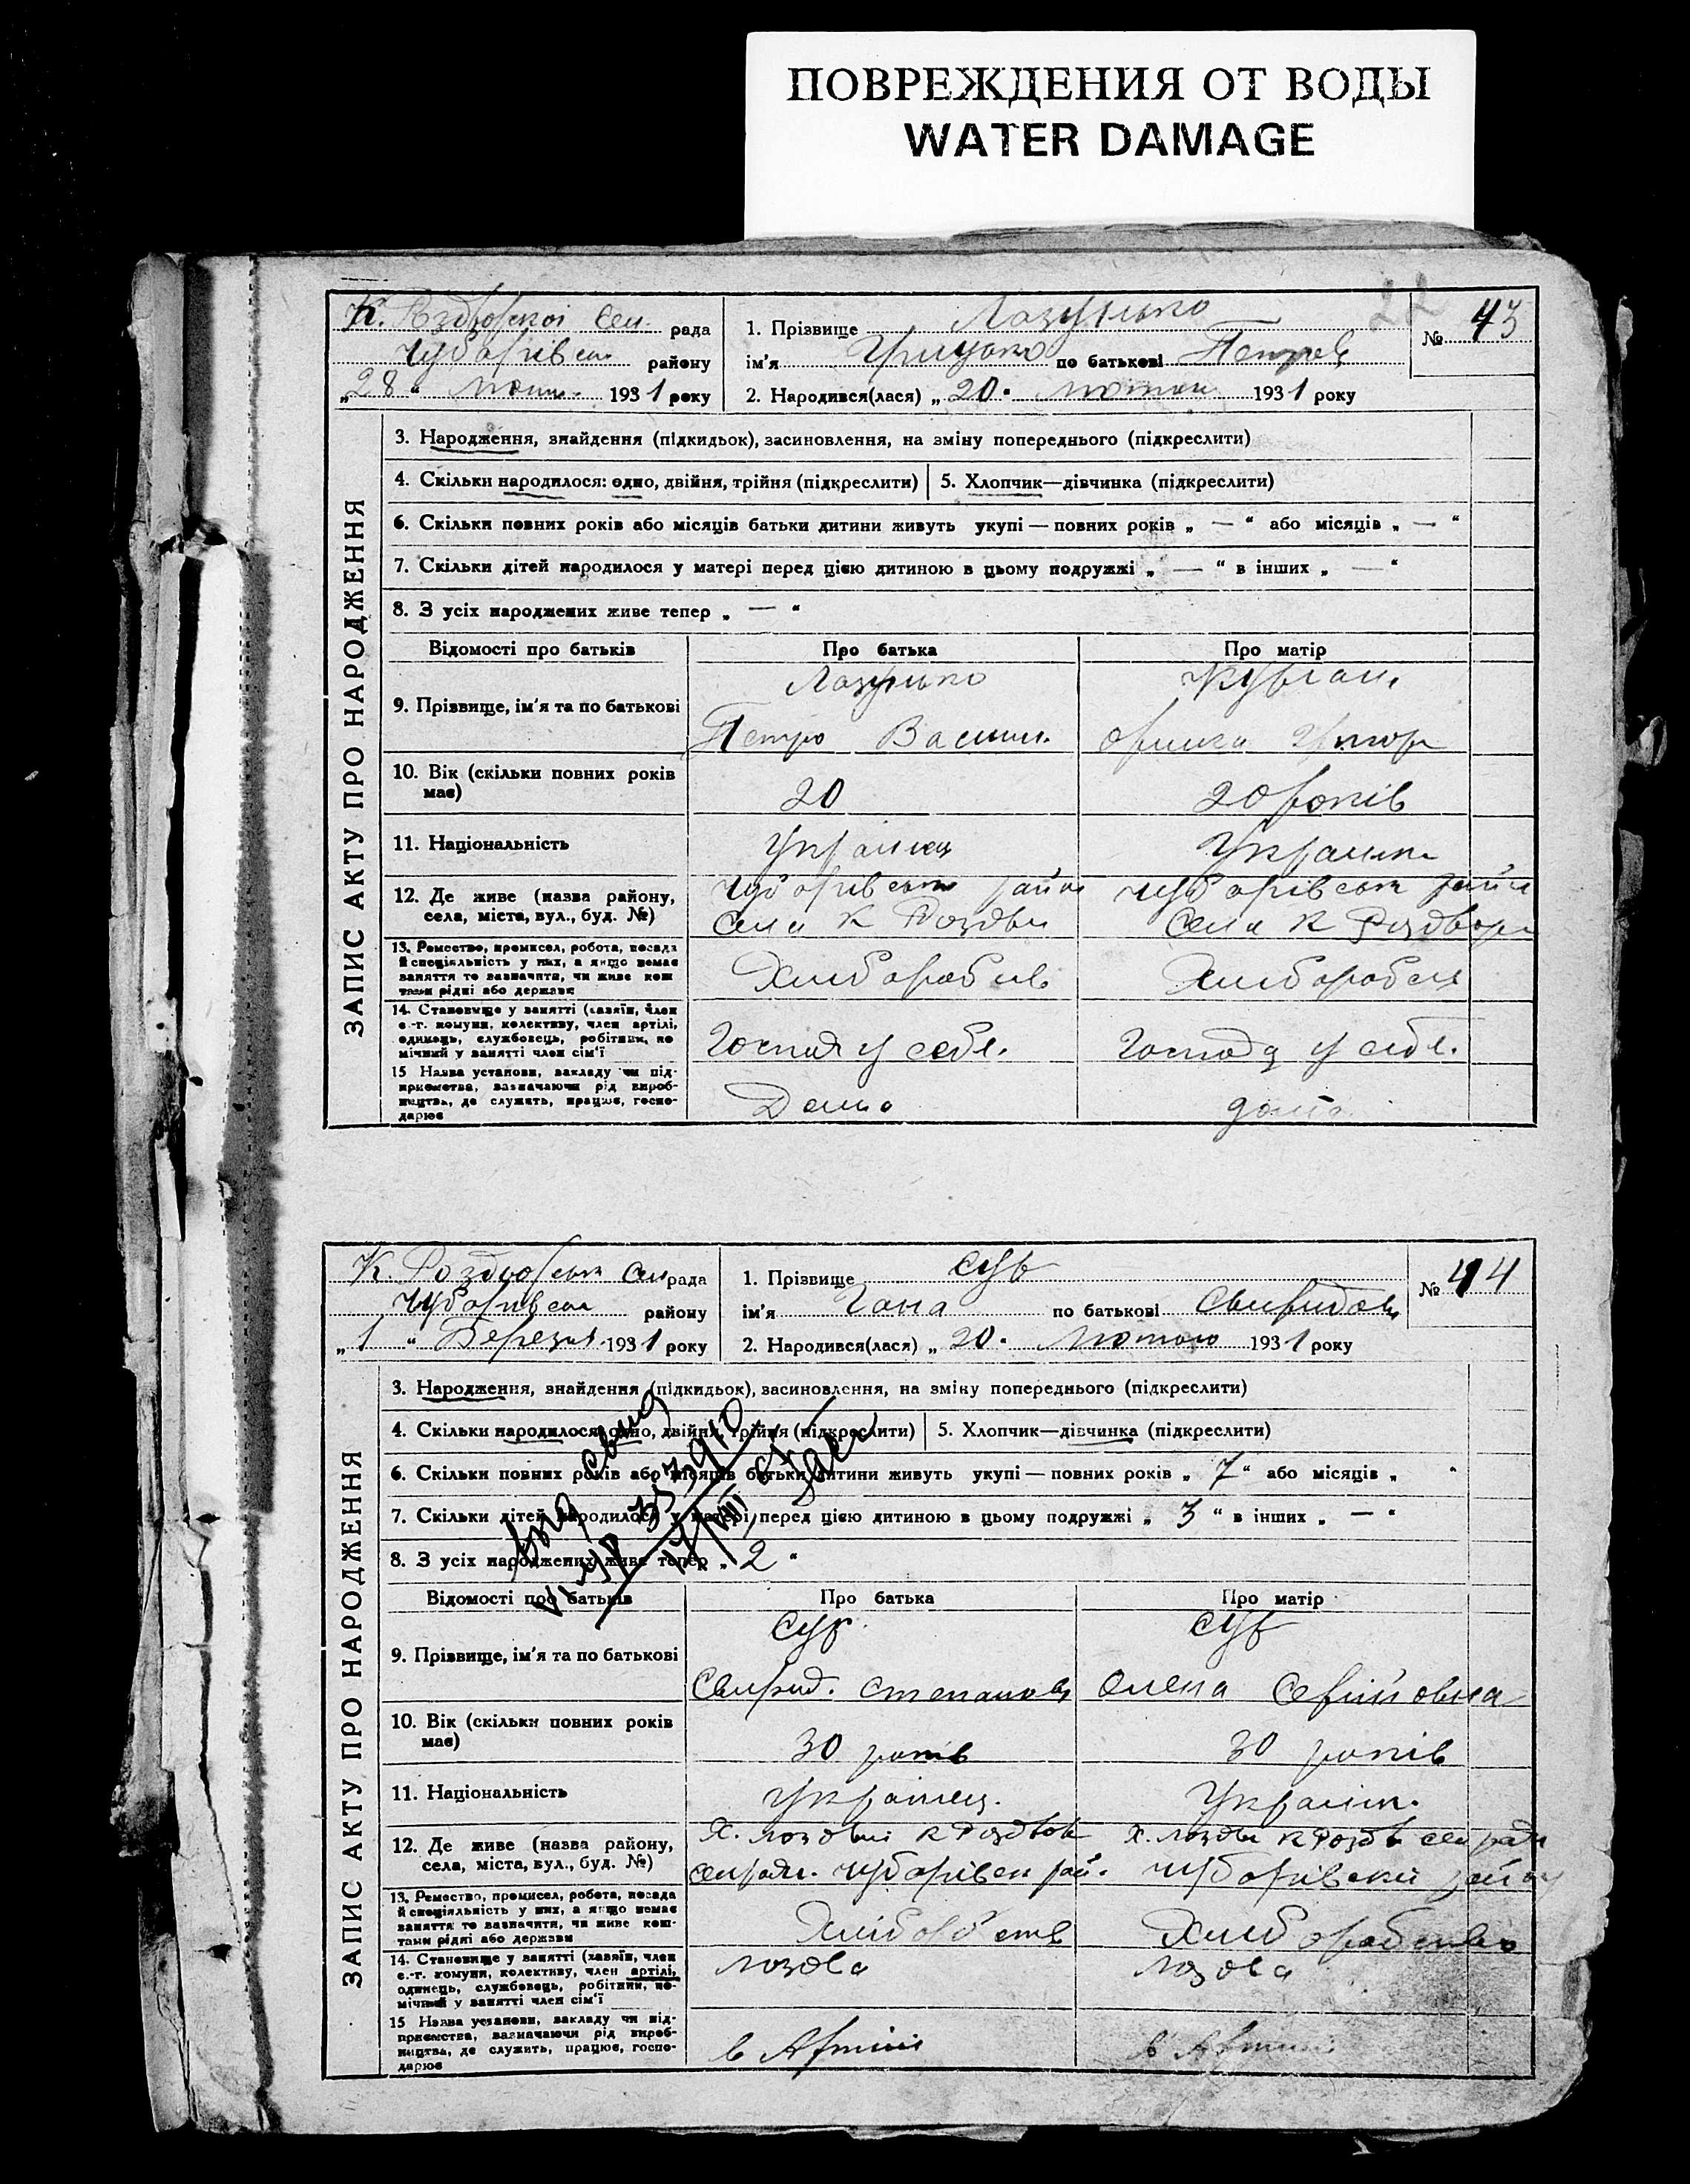 ПОВРЕЖДЕНИЯ ОТ ВОДЫ
WATER DAMAGE
22
К. рада
Чубарівськ району
„28“ 1931 року
1. Прізвище
№ 43
ім'я Грицько по батькові Петров
2. Народився(лася) „20“ лютого 1931 року
ЗАПИС АКТУ ПРО НАРОДЖЕННЯ
3. Народження, знайдення (підкидьок), засиновлення, на зміну попереднього (підкреслити)
4. Скільки народилося: одно, двійня, трійня (підкреслити) 5. Хлопчик—дівчинка (підкреслити)
6. Скільки повних років або місяців батьки дитини живуть укупі — повних років „ — “ або місяців „ — “
7. Скільки дітей народилося у матері перед цією дитиною в цьому подружжі „ — “ в інших „ — “
8. З усіх народжених живе тепер „ — “
Відомості про батьків Про батька Про матір
9. Прізвище, ім'я та по батькові
Петро Васил.
10. Вік (скільки повних років має) 20 20 років
11. Національність Українець Українка
12. Де живе (назва району, села, міста, вул., буд. №)
Чубарівськ район Чубарівськ район
Села К Роздор Села К Роздор
13. Ремество, промисел, робота, посада й спеціяльність у них, а якщо немає заняття то зазначити, чи живе коштами рідні або держави
Хлібороб Хлібороб
14. Становище у занятті (хазяїн, член с.-г. комуни, колективу, член артілі, одинець, службовець, робітник, помічний у занятті член сім'ї
Господ у себе. Господ у себе.
15 Назва установи, закладу чи підприємства, зазначаючи рід виробництва, де служить, працює, господарює
Дома дома
К. Роздорськ Сел рада
Чубарівськ району
„1“ Березня 1931 року
1. Прізвище Сур
№ 44
ім'я Гана по батькові Свиридов
2. Народився(лася) „20“ Лютого 1931 року
ЗАПИС АКТУ ПРО НАРОДЖЕННЯ
3. Народження, знайдення (підкидьок), засиновлення, на зміну попереднього (підкреслити)
4. Скільки народилося: одно, двійня, трійня (підкреслити) 5. Хлопчик—дівчинка (підкреслити)
6. Скільки повних років або місяців батьки дитини живуть укупі — повних років „7“ або місяців „ “
7. Скільки дітей народилося у матері перед цією дитиною в цьому подружжі „3“ в інших „ — “
8. З усіх народжених живе тепер „2“
Відомості про батьків Про батька Про матір
9. Прізвище, ім'я та по батькові
Сур Сур
Свирид. Степанов Олена Сергійовна
10. Вік (скільки повних років має) 30 років 30 років
11. Національність Українец. Українк.
12. Де живе (назва району, села, міста, вул., буд. №)
Х. Лозовий К Роздов Х. Лозов К Роздов сел ради
сел ради. Чубарівськ рай. Чубарівський район
13. Ремество, промисел, робота, посада й спеціяльність у них, а якщо немає заняття то зазначити, чи живе коштами рідні або держави
14. Становище у занятті (хазяїн, член с.-г. комуни, колективу, член артілі, одинець, службовець, робітник, помічний у занятті член сім'ї
15 Назва установи, закладу чи підприємства, зазначаючи рід виробництва, де служить, працює, господарює
в Артілі в Артілі